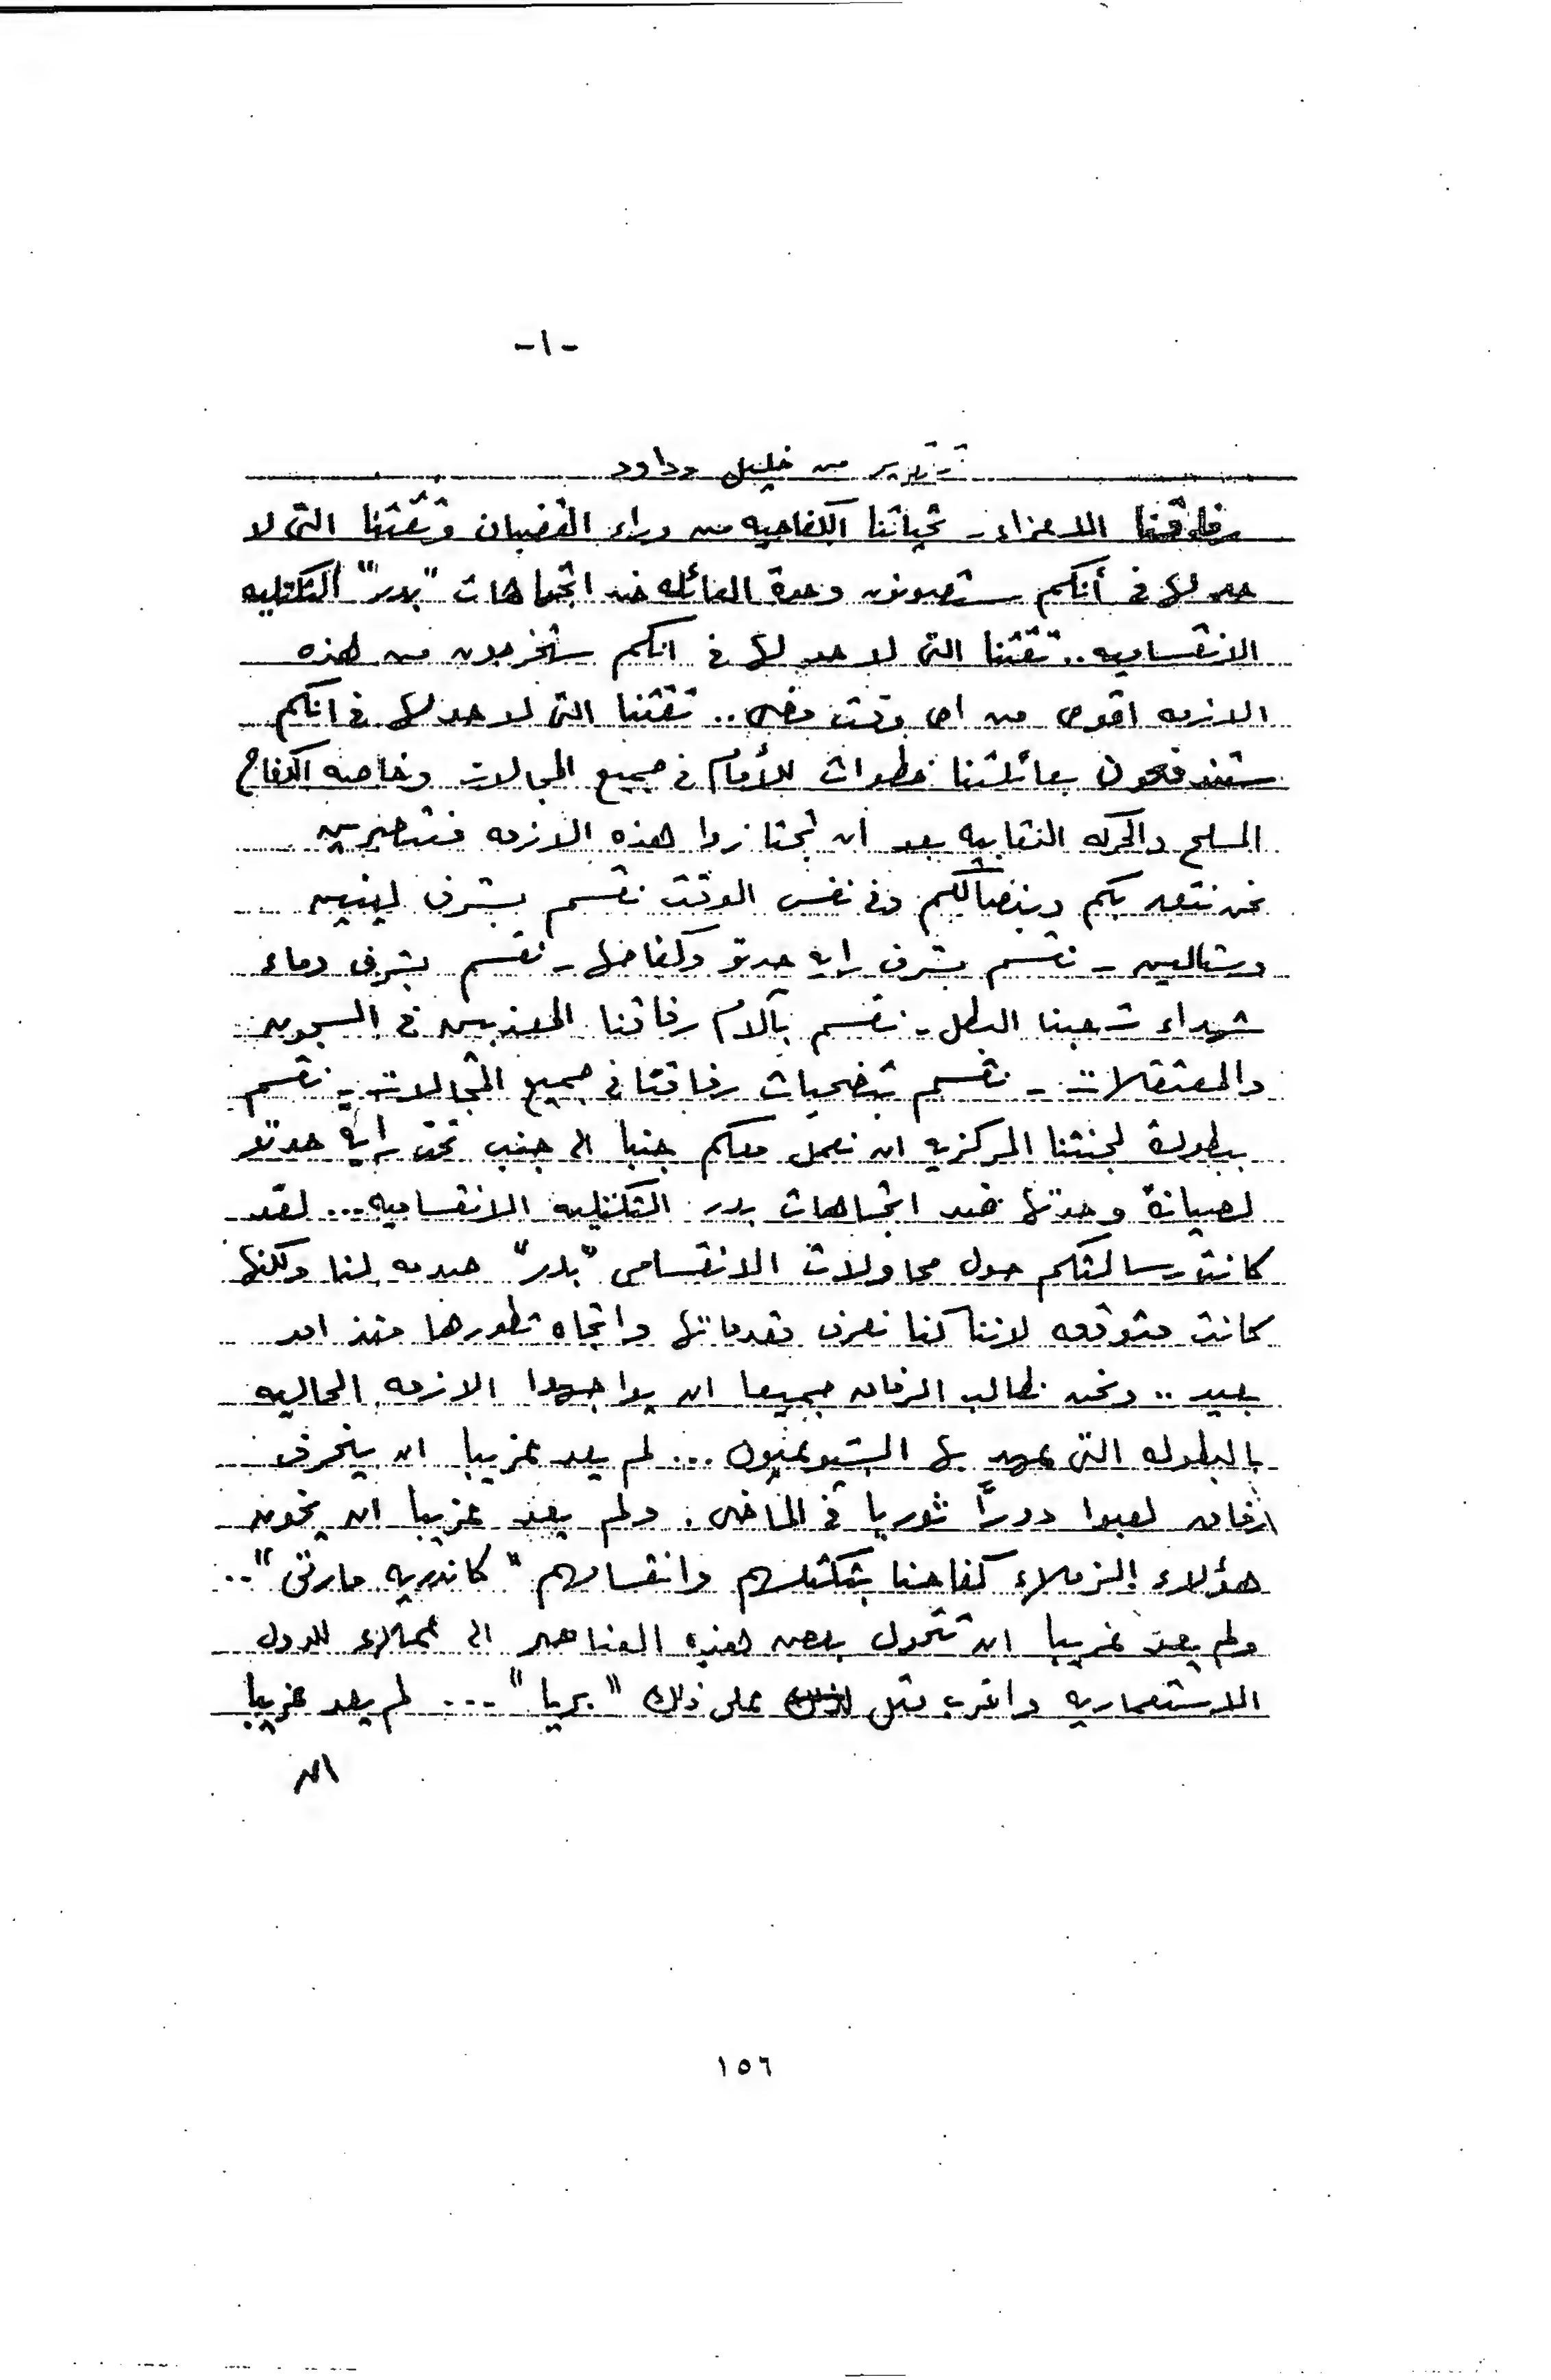 -١-
تقرير من خليل وداود
رفاقنا الاعزاء - تحياتنا الكفاحيه من وراء القضبان وثقتنا التى لا
حد لها فى أنكم ستصونون وحدة العائله ضد اتجاهات "بدر" التكتليه
الانقساميه .. ثقتنا التى لا حد لها فى انكم ستخرجون من هذه
الازمه اقوى من اى وقت مضى .. ثقتنا التى لا حد لها فى انكم
ستندفعون بعائلتنا خطوات للأمام فى جميع المجالات وخاصه الكفاح
المسلح والحركه النقابيه بعد ان تجتازوا هذه الازمه منتصرين
نحن نتعهد بكم وبنضالكم وفى نفس الوقت نقسم بشرف لينين
وستالين - نقسم بشرف رايه حدتو وكفاحها - نقسم بشرف دماء
شهداء شعبنا البطل - نقسم بآلام رفاقنا المعذبين فى السجون
والمعتقلات - نقسم بتضحيات رفاقنا فى جميع المجالات - نقسم
ببطولة لجنتنا المركزيه ان نعمل معكم جنبا الى جنب تحت رايه حدتو
لصيانة وحدتها ضد اتجاهات بدر التكتليه الانقساميه ... لقد
كانت رسالتكم حول محاولات الانقسامى "بدر" صدمه لنا ولكنها
كانت متوقعه لاننا كنا نعرف مقدماتها واتجاه تطورها منذ امد
بعيد .. ونحن نطالب الرفاق جميعا ان يواجهوا الازمه الحاليه
بالبطوله التى عهد بها الشيوعيون ... لم يعد غريبا ان ينحرف
رفاق لعبوا دوراً ثوريا فى الماضى . ولم يعد غريبا ان يخون
هؤلاء الزملاء كفاحنا بتكتلهم وانقسامهم "كاندريه مارتى" ..
ولم يعد غريبا ان تتحول بعض هذه العناصر الى عملاء للدول
الاستعماريه واقرب مثل على ذلك "بريا" ... لم يعد غريبا
ان
١٥٦